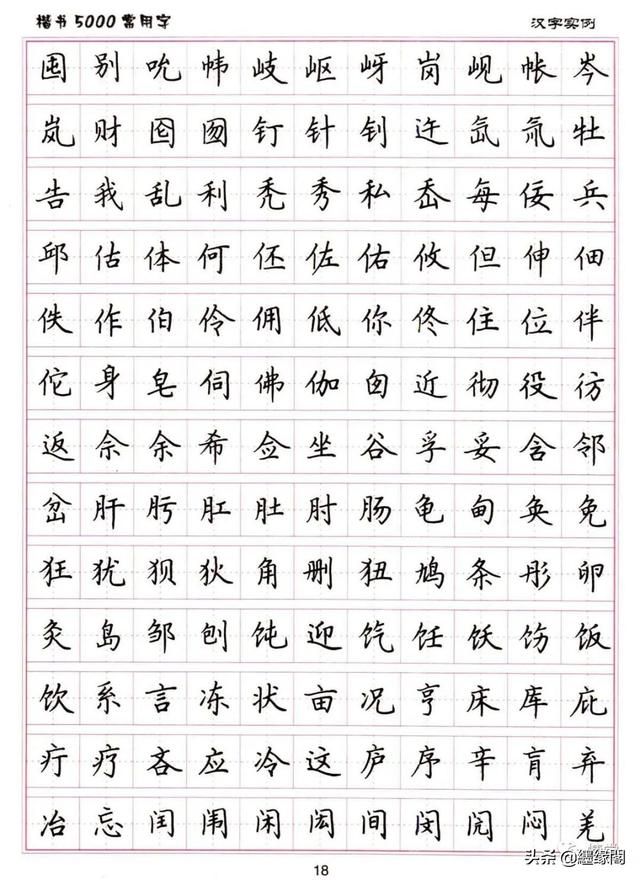 楷书5000常用字 汉字实例
囤别吮帏岐岖岈岗岘帐岑
岚财囵囫钉针钊迕氙氚牡
告我乱利秃秀私岙每佞兵
邱估体何伾佐佑攸但伸佃
佚作伯伶佣低你佟住位伴
佗身皂伺佛伽囱近彻役彷
返佘余希佥坐谷孚妥含邻
岔肝肟肛肚肘肠龟甸奂免
狂犹狈狄角删狃鸠条彤卵
灸岛邹刨饨迎饩饪饫饬饭
饮系言冻状亩况亨床库庇
疔疗吝应冷这庐序辛肓弃
冶忘闰闱闲闳间闵闶闷羌
18
头条 @纏缘閣